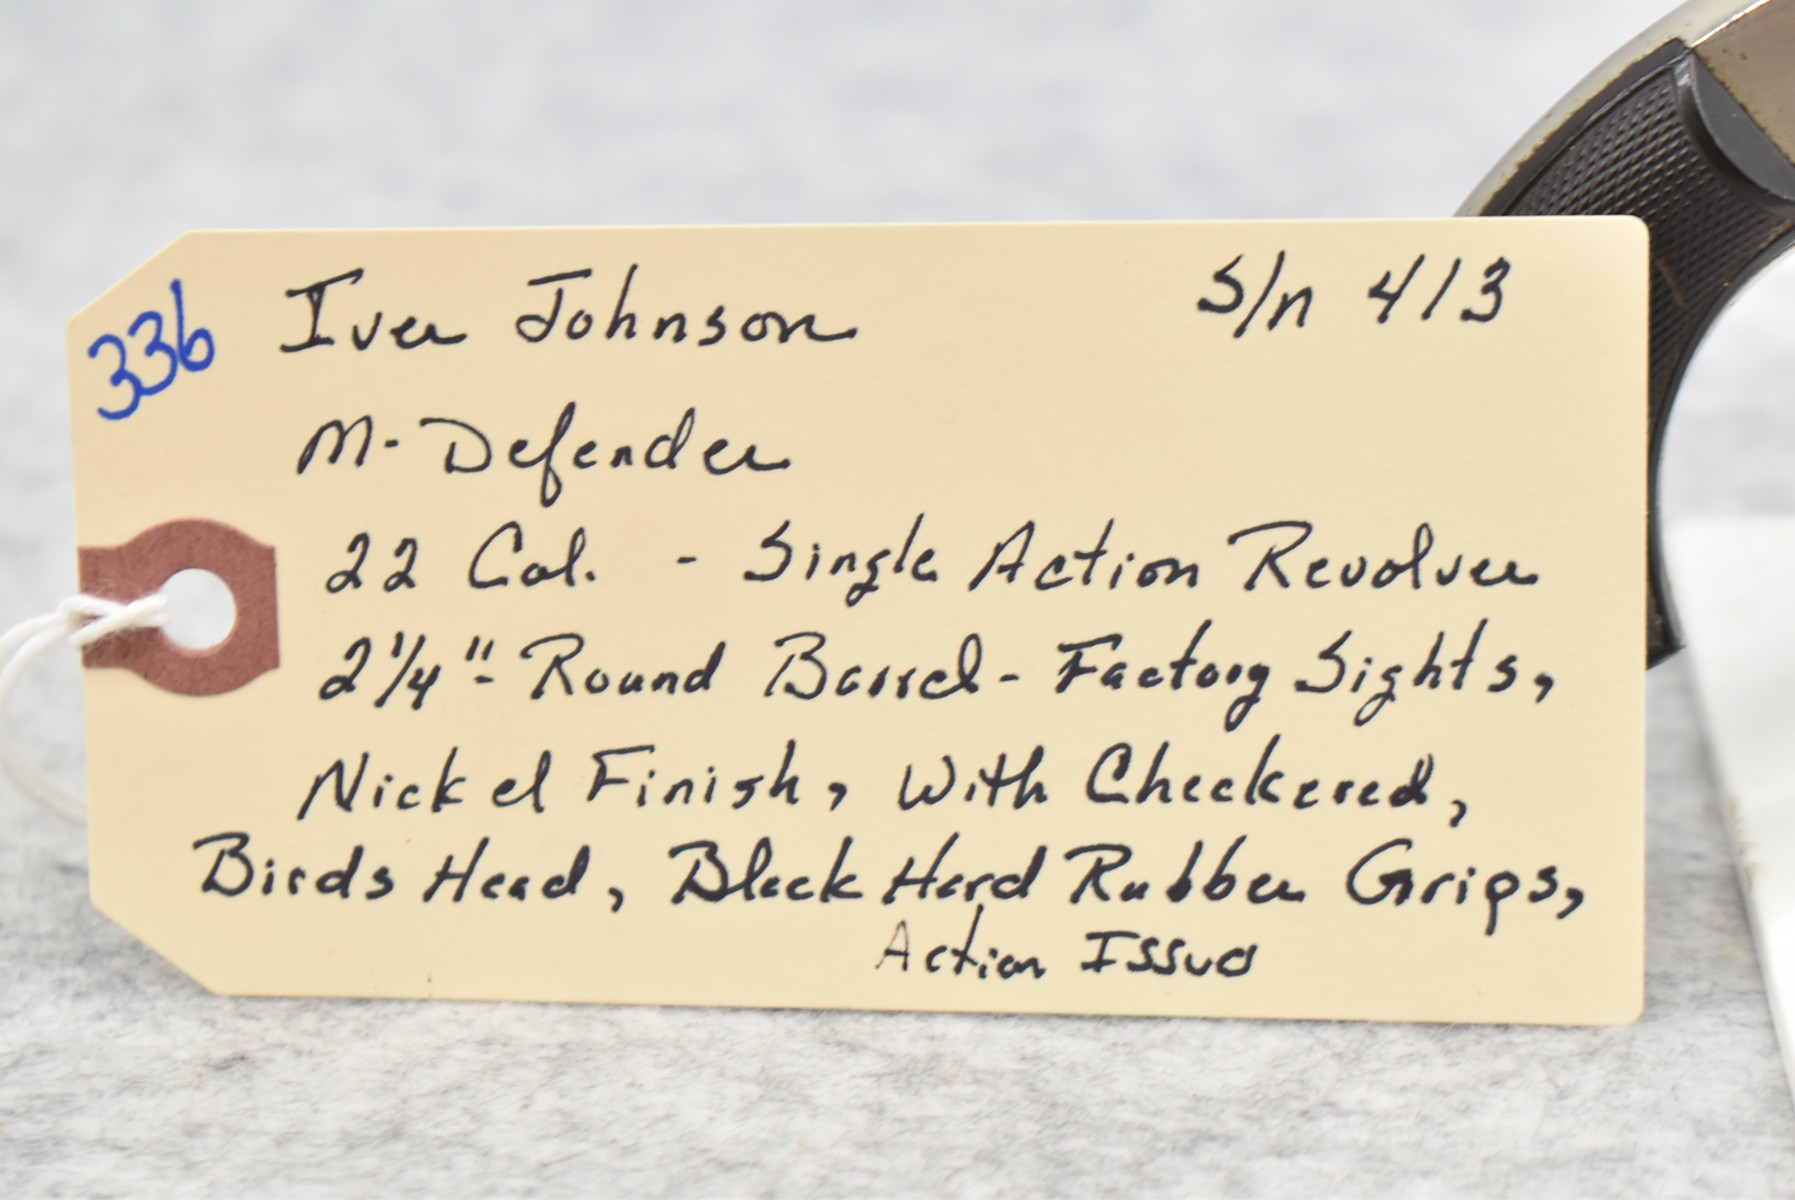 336 Iver Johnson S/n 413
M-Defender
22 Cal. - Single Action Revolver
2 1/4" - Round Barrel - Factory Sights,
Nickel Finish, With Checkered,
Birds Head, Black Hard Rubber Grips,
Action Issue